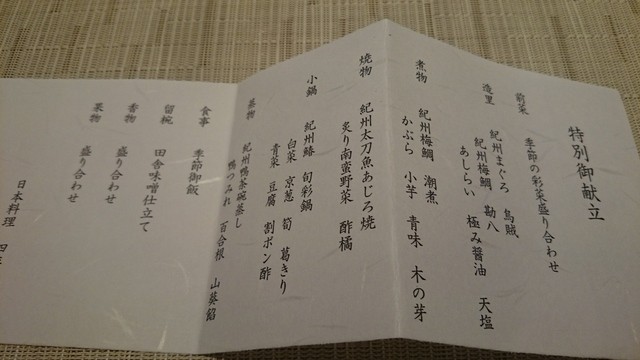 特別御献立
前菜　季節の彩菜盛り合わせ
造里　紀州まぐろ　烏賊　勘八
紀州梅鯛　あしらい　極み醤油　天塩
煮物　紀州梅鯛　潮煮
かぶら　小芋　青味　木の芽
焼物　紀州太刀魚あじろ焼
炙り南蛮野菜　酢橘
小鍋　紀州鰆　旬彩鍋
白菜　京葱　筍　葛きり
青菜　豆腐　割ポン酢
蒸物　紀州鴨茶碗蒸し
鴨つみれ　百合根　山葵餡
食事　季節御飯
留椀　田舎味噌仕立て
香物　盛り合わせ
果物　盛り合わせ
日本料理　四季